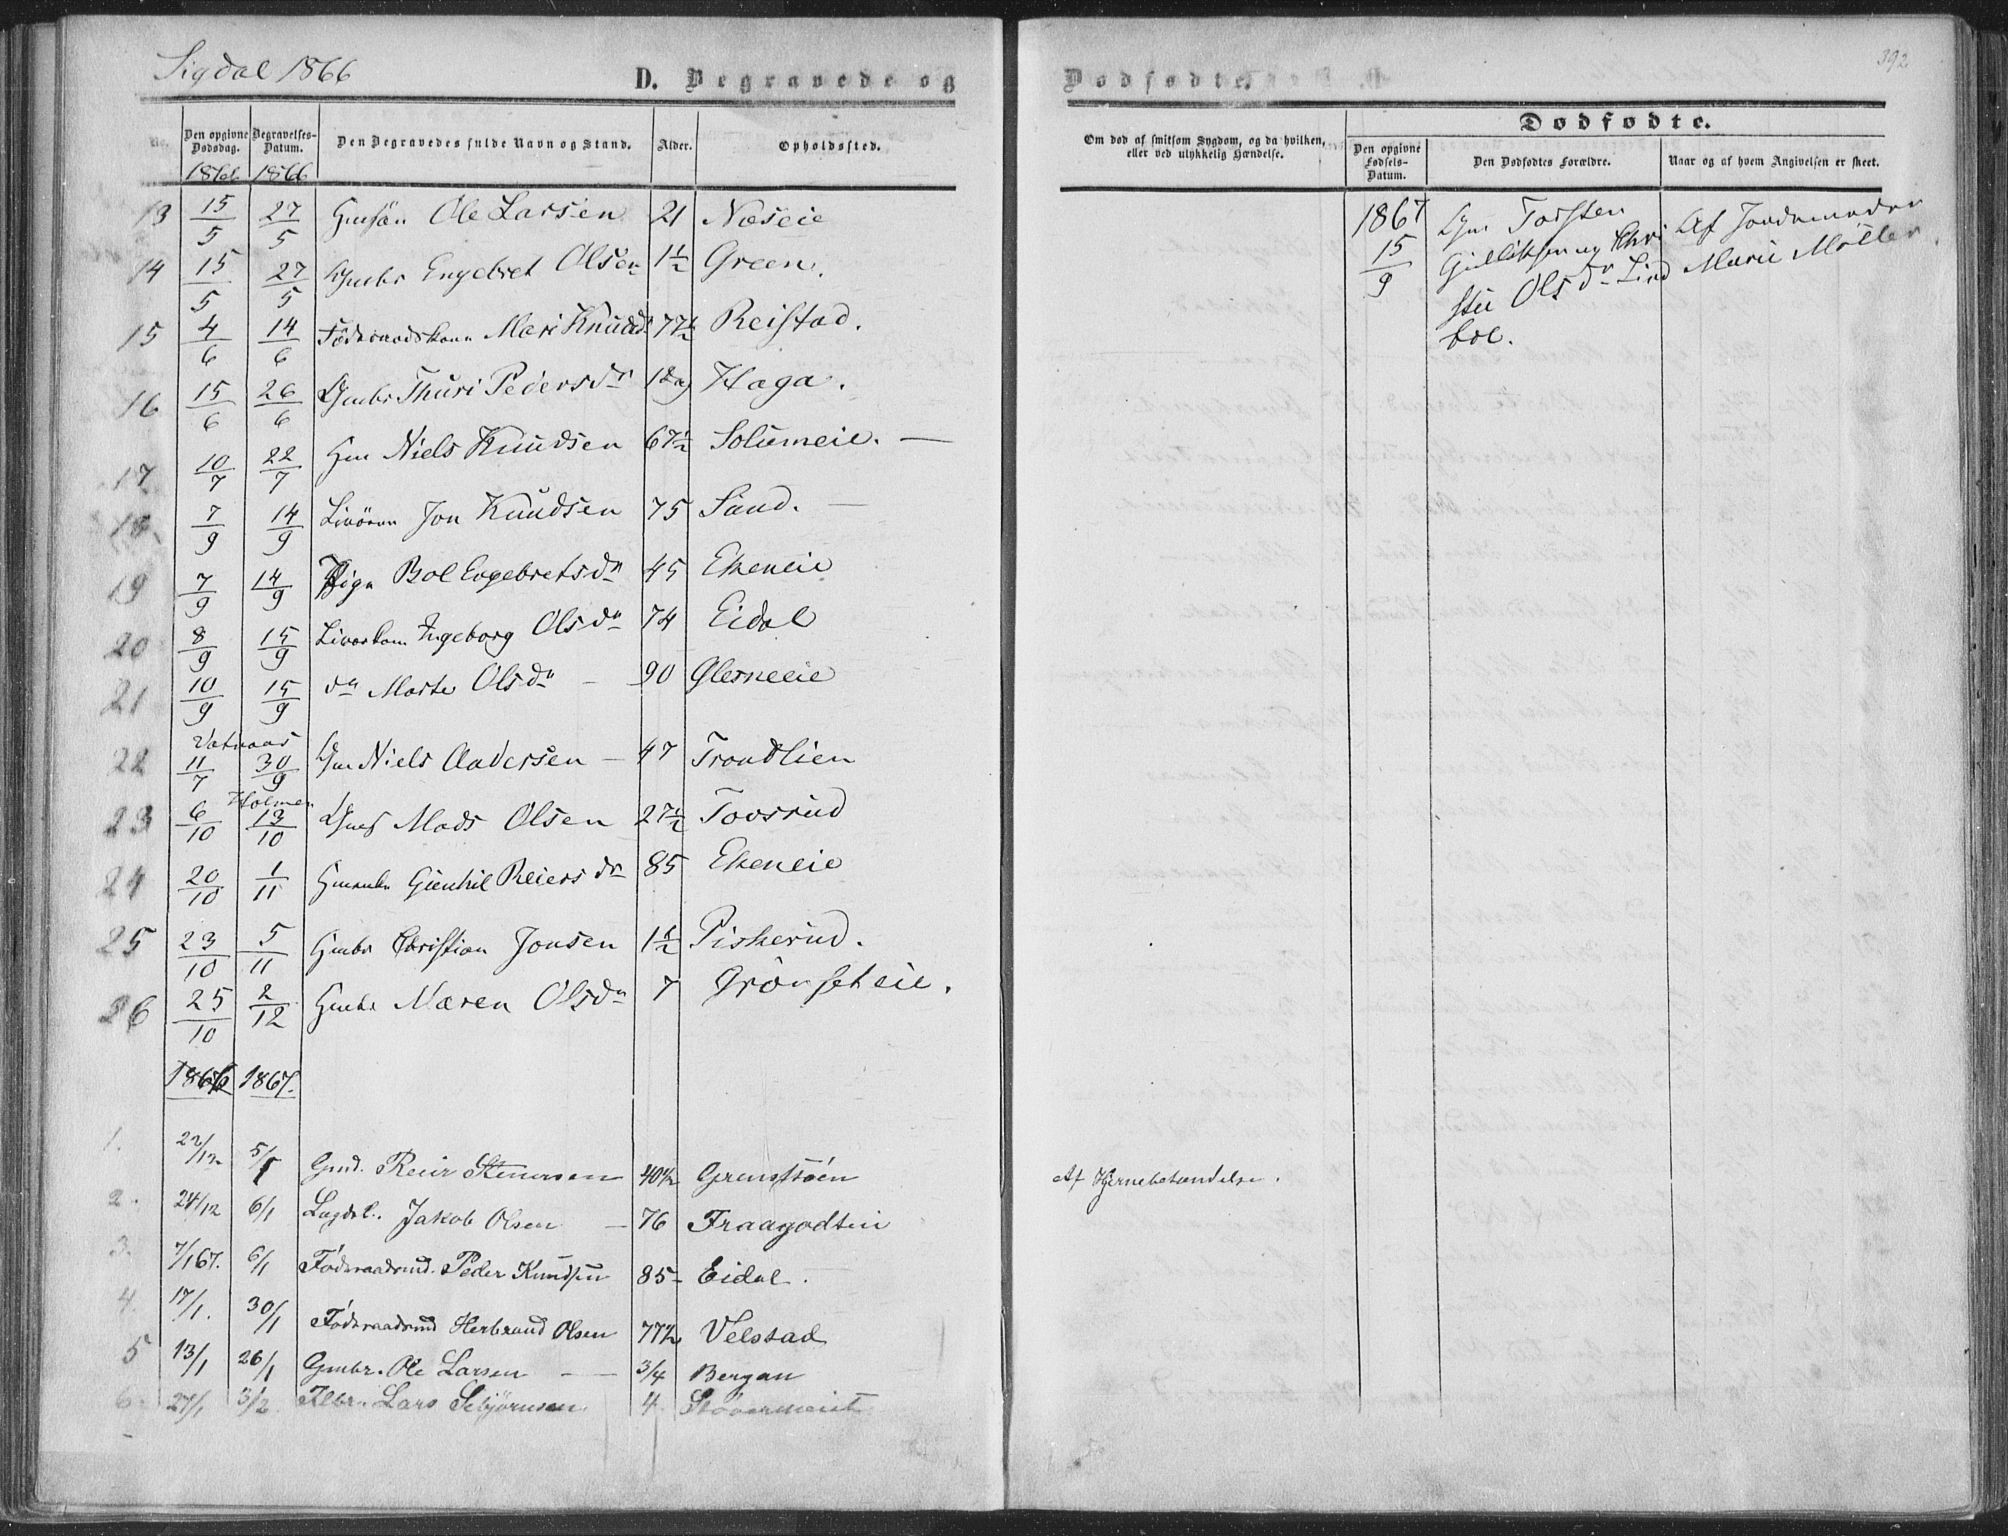 Sigdal 1866
D. Begravede og
No. Den opgivne Dødsdag. Begravelses-Datum. Den Begravedes fulde Navn og Stand. Alder. Opholdssted.
1866 1866
13 15/5 27/5 Ole Larsen 21 Næseie
14 15/5 27/5 Engebret Olsen 1½ Green.
15 4/6 14/6 Mari Knudsd 77½ Reistad.
16 15/6 26/6 Gmbr Thuri Pedersdr Haga.
17 10/7 22/7 Hm Niels Knudsen 67½ Solumeie. —
18 7/9 14/9 Jon Knudsen 75 Sand. —
19 7/9 14/9 Pige Bol Engebretsdr 45 Ekeneie
20 8/9 15/9 Ingeborg Olsdr 74 Eidal
21 10/9 15/9 do Marte Olsdr — 90 Glesneeie
Vatnaas
22 11/7 30/9 Gm Niels Andersen — 47 Trondlien
Holmen
23 6/10 13/10 Mads Olsen 27½ Tovsrud
24 20/10 1/11 Gunhil Reiersdr 85 Ekeneie
25 23/10 5/11 Hmbr Christian Jonsen 1½ Piskerud.
26 25/10 2/12 Hmbr Maren Olsdr 7 Grönseteie.
1866 1867.
1. 22/12 5/1 Gmd. Reier Stenersen 40½
2. 24/12 6/1 Lægdsl. Jakob Olsen — 76 Fraagodtein
3. 7/1 67. 6/1 Föderaadsmd. Peder Knudsen 85 Eidal.
4. 17/1. 30/1 Föderaadsmd Herbrand Olsen 77½ Velstad
5 13/1 26/1 Gmbr. Ole Larsen — 3/4 Bergan
6. 27/1 3/2 Lars Sebjørnsen 4
Dødfødte.
392
Om død af smitsom Sygdom, og da hvilken, eller ved ulykkelig Hændelse.
Dødfødte.
Den opgivne Fødsels-Datum. Den Dødfødtes Forældre. Naar og af hvem Angivelsen er skeet.
1867 15/9
Gm Torsten
Gulliksen og Chri
stie Olsdr Lind
bol.
Af Jordemoder
Marie Möller.
Af Hjernebetændelse.